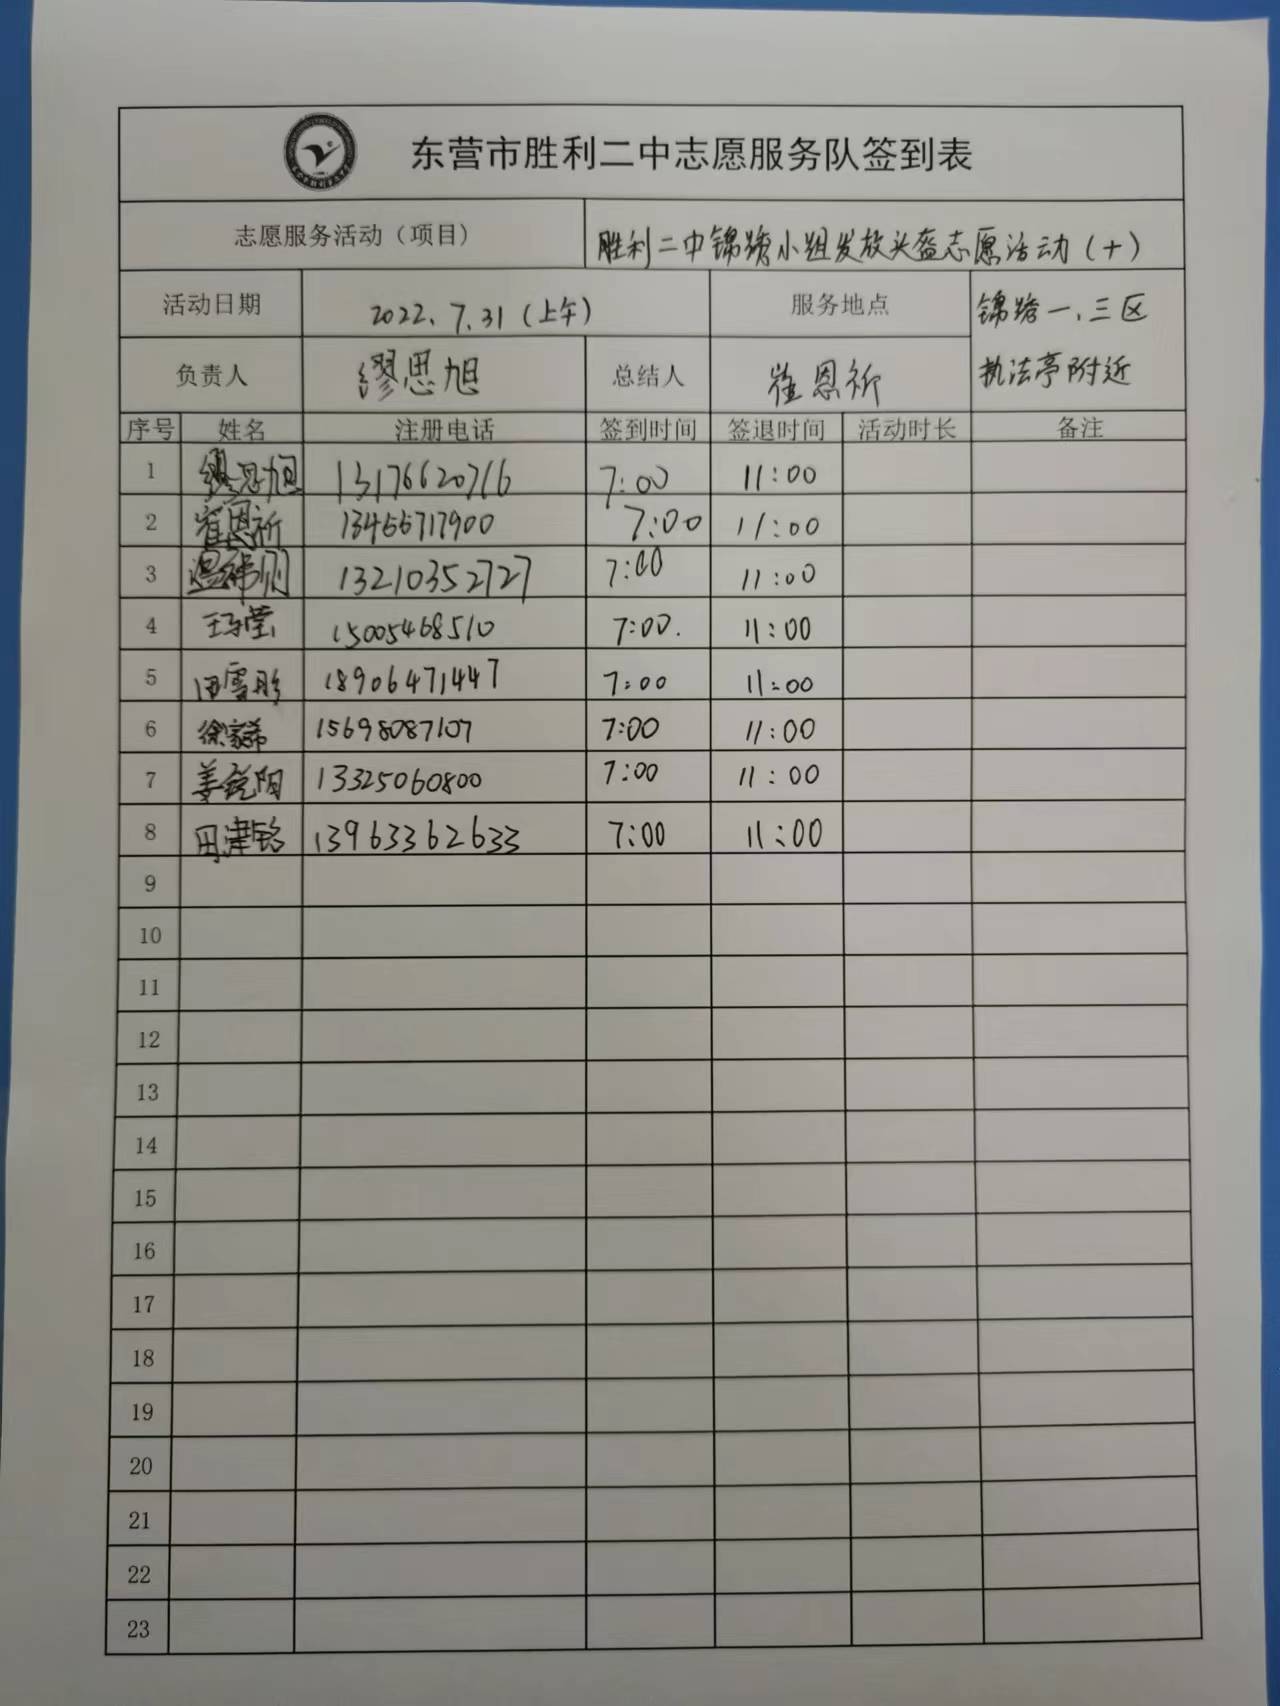 东营市胜利二中志愿服务队签到表
志愿服务活动（项目） 胜利二中锦绣小组发放头盔志愿活动（十）
活动日期 2022.7.31（上午） 服务地点 锦绣一、三区
负责人 缪思旭 总结人 崔恩祈 执法亭附近
序号 姓名 注册电话 签到时间 签退时间 活动时长 备注
1 缪思旭 13176620716 7:00 11:00
2 崔恩祈 13466717900 7:00 11:00
3 13210352727 7:00 11:00
4 15005468510 7:00. 11:00
5 田雪彤 18906471447 7:00 11:00
6 徐家希 15698087107 7:00 11:00
7 姜锐阳 13325060800 7:00 11:00
8 田津铭 13963362633 7:00 11:00
9
10
11
12
13
14
15
16
17
18
19
20
21
22
23